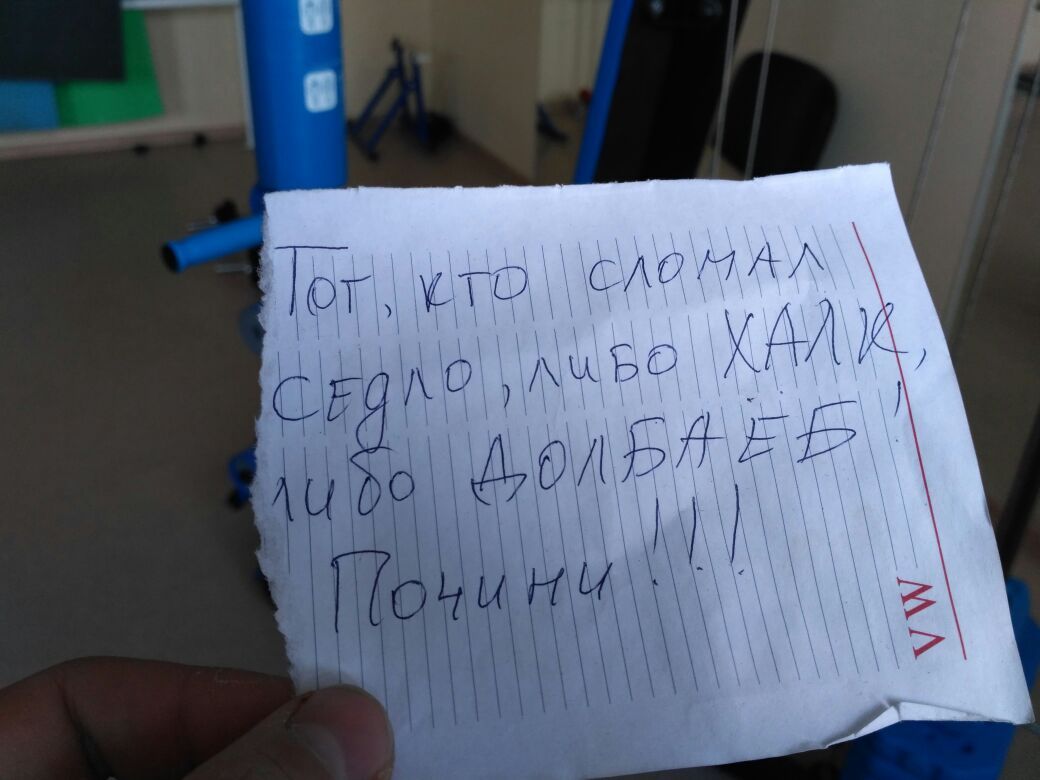 Тот, кто сломал
седло, либо ХАЛК,
либо ДОЛБАЁБ!
Почини!!!
VW